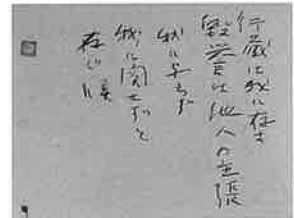 行蔵は我に存す
毀誉は他人の主張
我に与らず
我に関せずと
存じ候